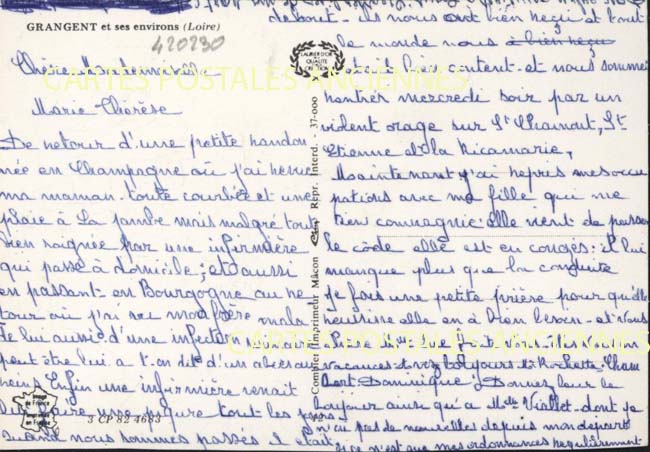 GRANGENT et ses environs (Loire)
420230
CARTES POSTALES ANCIENNES
Chère Mademoiselle
Marie Thérèse
De retour d'une petite randon
née en Champagne où j'ai revue
ma maman toute courbée et une
plaie à la jambe mais malgré tout
bien soignée par une infirmière
qui passe à domicile; et aussi
en passant en Bourgogne au re
tour où j'ai vu mon frère mala
de lui aussi d'une infection
peut être lui a t'on dit d'un abcès au
Enfin une infirmière venait
lui faire une piqure tout les jours
quand nous sommes passés il était
debout - ils nous ont bien reçu et tout
le monde nous a bien reçu
était bien content et nous sommes
rentrer mercredi soir par un
violent orage sur St Chamont, St
Etienne et la Ricamarie,
Maintenant j'ai repris mes occu
pations avec ma fille qui me
tien compagnie elle vient de passer
le code elle est en congés: il lui
manque plus que la conduite
je fais une petite prière pour qu'elle
réussisse elle en a bien besoin et vous
Chère Mlle que faites vous êtes vous en
vacances et voyez toujours Mr Rochette Cham
bort Dominique; Donnez leur le
bonjour ainsi qu'à Melle Viallet dont je
n'ai pas de nouvelles depuis mon départ
si ce n'est que mes ordonnances régulièrement
LAURIER D'OR
QUALITE
Combier Imprimeur Mâcon Repr. Interd. - 37-000
CARTES POSTALES ANCIENNES
Image de France
Imprimée en France
3 CP 82 4683